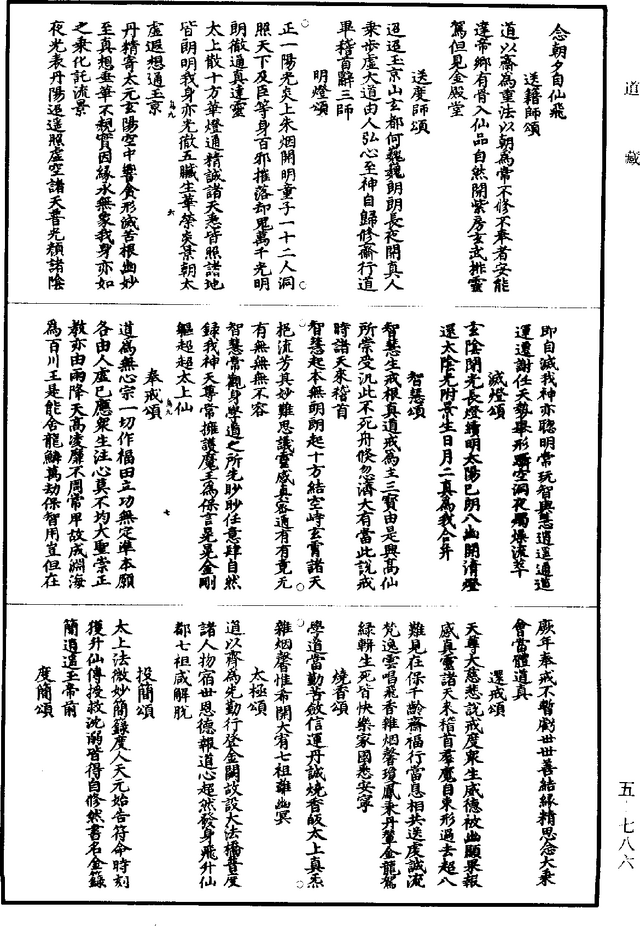 道藏
五·七八六
念朝夕自仙飛
送籍師頌
道以齋為重法以朝為常不修不奉者安能
達帝鄉有骨入仙品自然開紫房玄武排靈
駕但見金殿堂
送度師頌
迢迢玉京山玄都何巍巍朗朗長夜開真人
乘步虛大道由人弘心至神自歸修齋行道
畢稽首辭三師
明燈頌
正一陽光炎上朱烟開明童子一十二人洞
照天下及臣等身百邪摧落却鬼萬千光明
朗徹通真達靈
太上散十方華燈通精誠諸天悉皆照諸地
皆朗明我身亦光徹五臟生華榮炎景朝太
虛遐想通玉京
丹精寄太元玄陽空中響貪形滅苦根幽妙
至真想垂華不現實因緣永無象我身亦如
之乘化託流景
夜光表丹陽迢遥照虛空諸天普光頹諸陰
即自滅我神亦聰明常玩智與慧逍遥通道
運遷謝任天勢舉形
空洞夜
燥流萃
滅燈頌
玄陰閉光長燈續明太陽已朗八幽開清燈
還太陰光附景生日月二真為我合并
智慧頌
智慧生戒根真道戒為主三寶由是興高仙
所常受汎此不死舟倏忽濟大有當此說戒
時諸天來稽首
智慧起本無朗朗超十方結空峙玄霄諸天
挹流芳其妙難思議靈感真寥通有有竟无
有無無無不容
智慧常觀身學道之所先眇眇任意肆自然
錄我神天尊常擁護魔王為保言晃晃金剛
軀超超太上仙
奉戒頌
道為無心宗一切作福田立功無定準本願
各由人虛己應衆生注心莫不均大聖崇正
教亦由雨降天高凌靡不周常卑故成淵海
為百川王是能舍龍鱗萬劫保智用豈但在
厥年奉戒不暫虧世世善結緣精思念大乘
會當體道真
還戒頌
天尊大慈悲說戒度衆生威德被幽顯果報
感真靈諸天來稽首羣魔自束形過去超八
難見在保千齡齋福行當息相共送虔誠流
梵逸雲唱飛香雜烟馨瓊鳳乘丹輦金龍駕
綠軿生死皆快樂家國悉安寧
燒香頌
學道當勤苦斂信運丹誠燒香皈太上真炁
雜烟馨惟希開大宥七祖離幽冥
太極頌
道以齋為先勤行登金闕故設大法橋普度
諸人物宿世恩德報道心超然發身飛升仙
都七祖咸解脫
投簡頌
太上法微妙簡錄度人天元始告符命時刻
獲升仙傳授救沈溺皆得自修然書名金籙
簡逍遥玉帝前
度簡頌